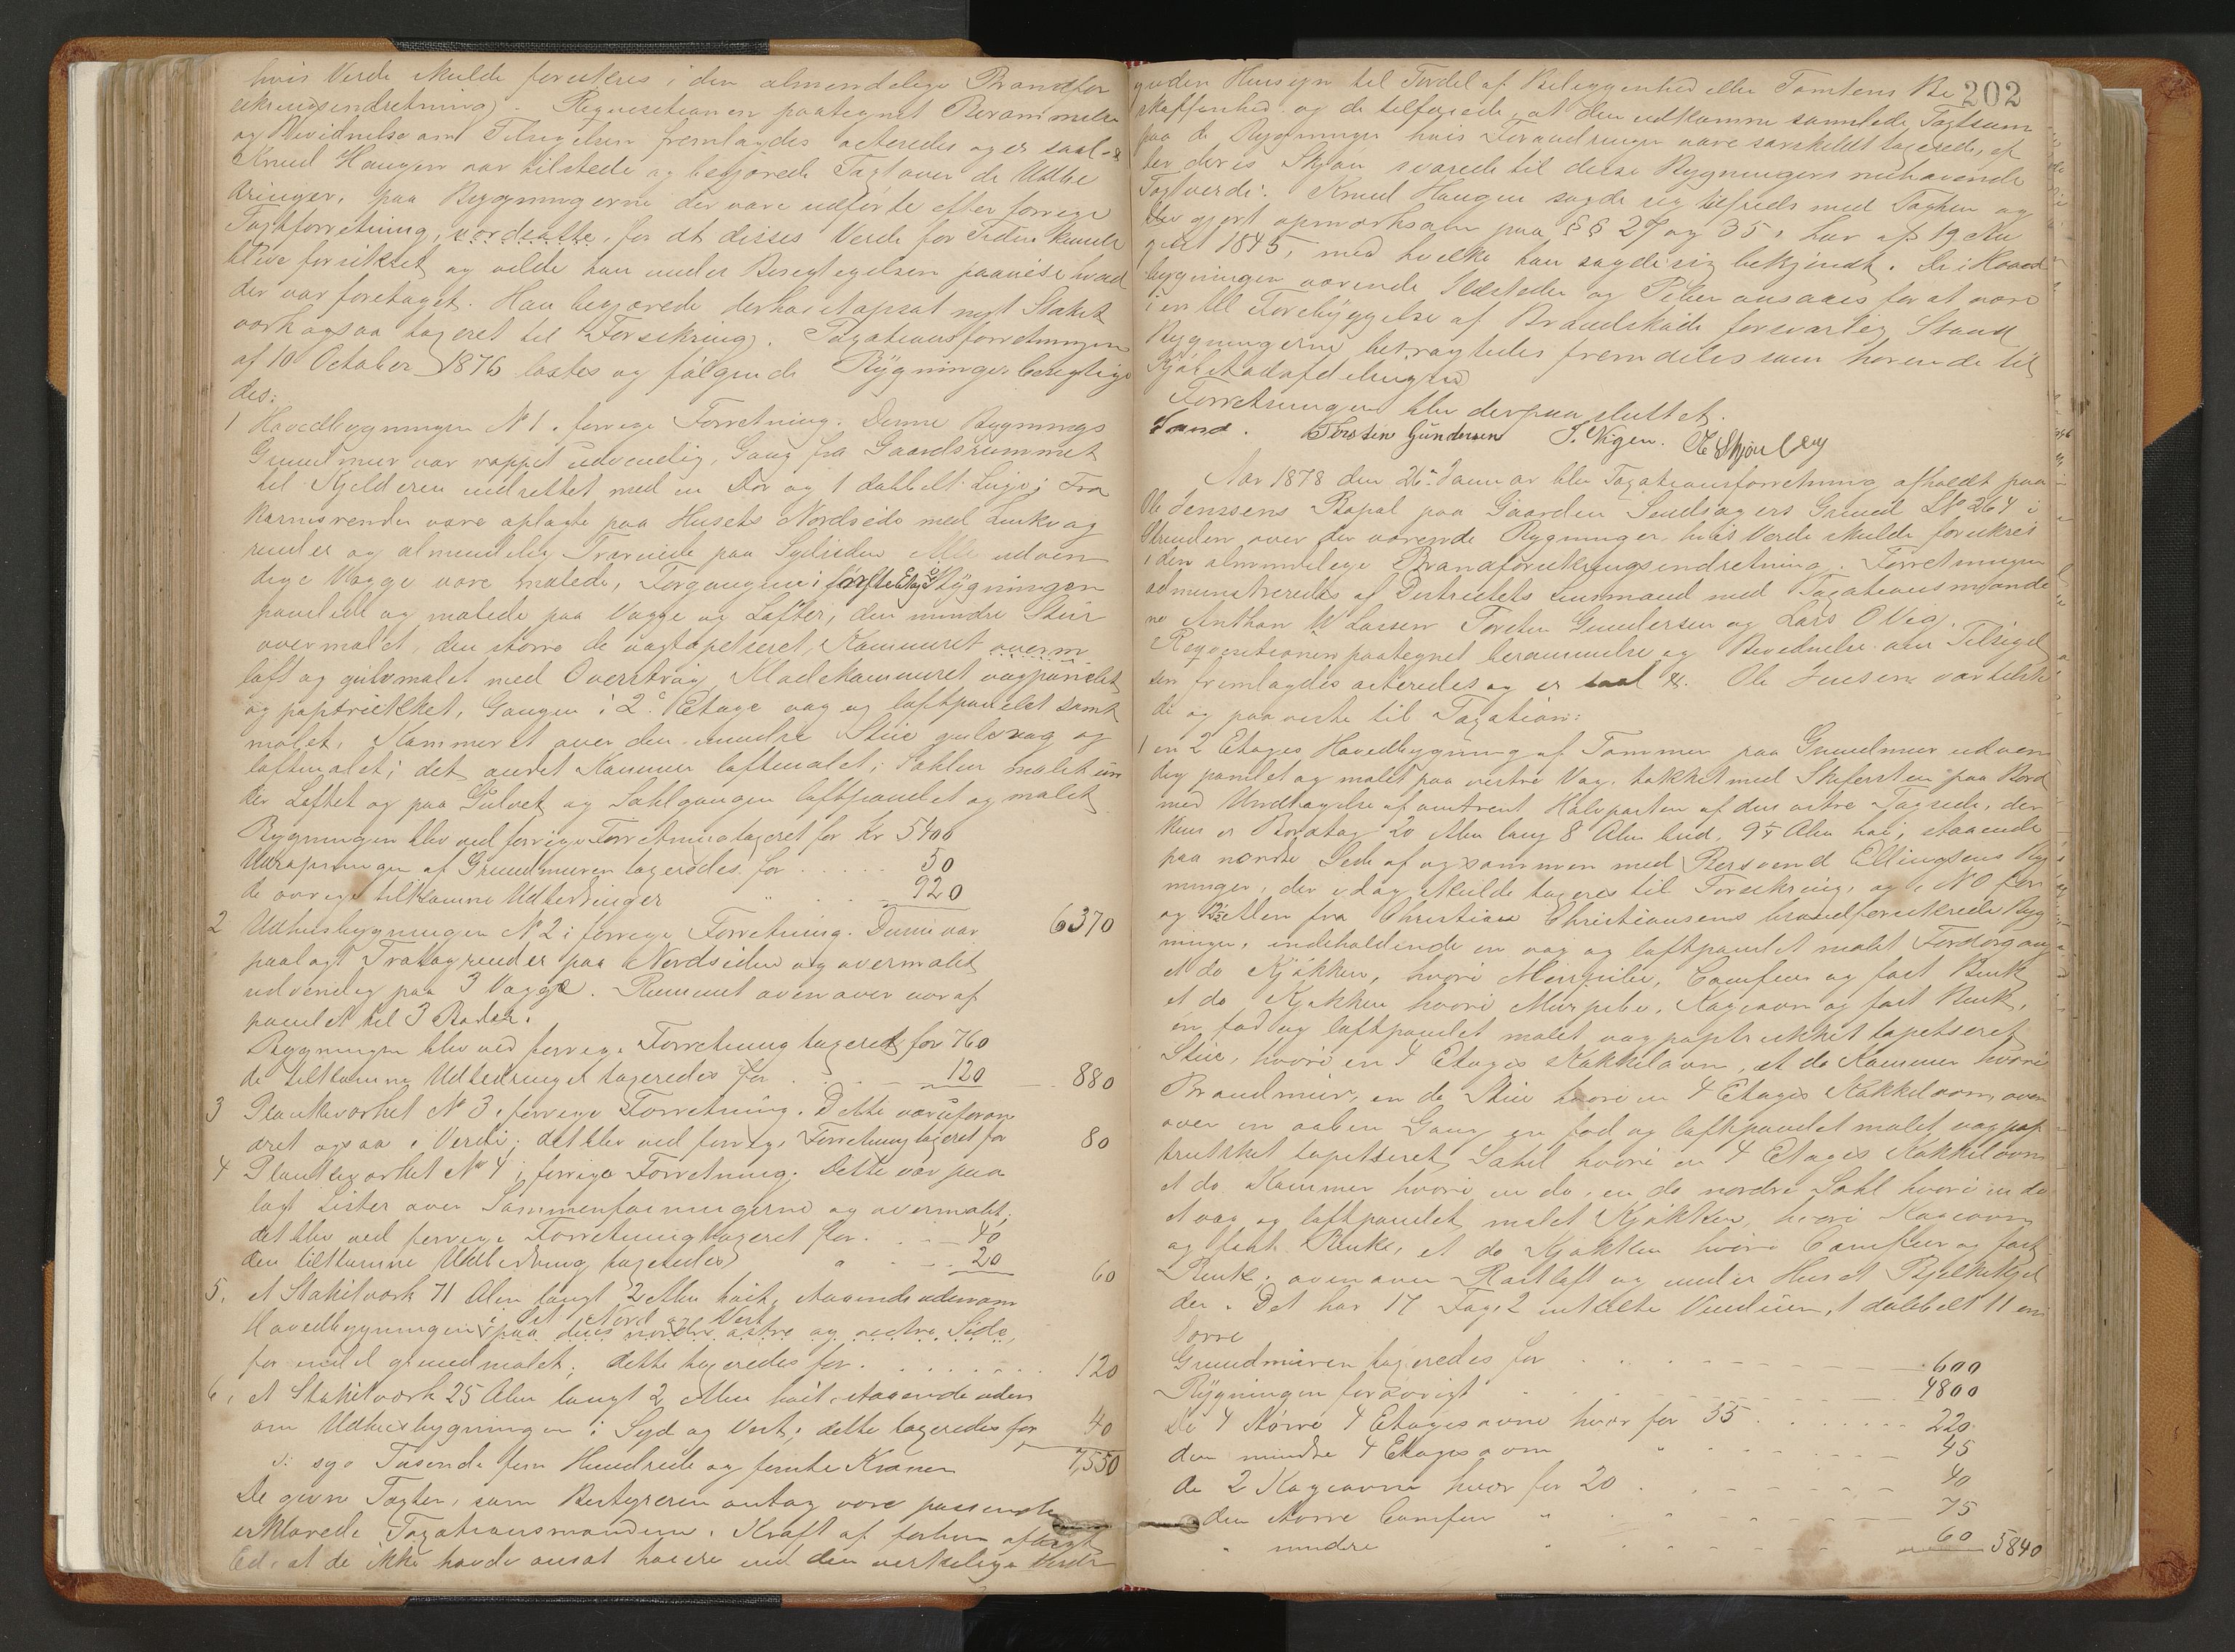 hvis Verdi skulde forsikres i den almendelige Brandfor
sikringsindretning. Requisitionen paategnet Berammelse
og Bevidnelse om Tilsigelsen fremlagdes acteredes og er saal. &
Knud Haugen var tilstede og begjærede Taxt over de Udbe
dringer, paa Bygningerne der vare udførte efter forrige
Taxtforretning, værdsatte, for at disses Verdi for Tiden kunde
blive forsikret og vilde han under Besigtigelsen paavise hvad
der var foretaget. Han begjærede derhos et opsat nyt Stakit
værk ogsaa taxeret til Forsikring. Taxationsforretningen
af 10 October 1876 læstes og følgende Bygninger besigtige
des:
1 Hovedbygningen No 1 i forrige Forretning. Denne Bygnings
Grundmur var rappet udvendig, Gang fra Gaardsrummet
til Kjelderen indrettet med en Dør og 1 dobbelt Luge; Træ
karnisrender vare oplagte paa Husets Nordside med Kroke og
render og almindelig Trærende paa Sydsiden Alle udven
dige Vægge vare malede, Forgangen i første Etage i Bygningen
panelede og malede paa Vægge og Lofter, den mindre Stue
overmalet, den større do vægtapetseret, Kammeret overm
loft og gulvmalet med Overstrøg, Madekammeret vægpanelet
og paptrukket, Gangen i 2. Etage væg og loftpanelet samt
malet, Kammeret over den mindre Stue gulv væg og
loftmalet; det andet Kammer loftmalet; Sahlen malet un
der Loftet og paa Gulvet og Sahlgangen loftpanelet og malet
Bygningen blev ved forrige Forretning taxeret for Kr 5400
Udrapningen af Grundmuren taxeredes for . . . . 50
de øvrige tilkomne Udbedringer " . . 920
6370
2 Udhusbygningen No 2 i forrige Forretning. Denne var
paalagt Trætagrender paa Nordsiden og overmalet
udvendig paa 3 Vægge. Rummet ovenover var af
panelet til 3 Boder.
Bygningen blev ved forrige Forretning taxeret for 760
de tilkomne Udbedringer taxeredes for . . . 120 880
3 Plankeværket No 3 i forrige Forretning. Dette var uforan
dret ogsaa i Verdi; det blev ved forrige Forretning taxeret for 80
4 Plankeværket No 4 i forrige Forretning. Dette var paa
lagt Lister over Sammenføiningerne og overmalt;
det blev ved forrige Forretning taxeret for . . 40
den tilkomne Udbedring taxeredes " . . 20 60
5. et Stakitværk 71 Alen langt 2 Alen høit, staaende udenom
i Øst Nord og Vest
Hovedbygningen paa dens nordre østre og vestre Side,
for endel grundmalet; dette taxeredes for . . . . . . . 120
6. et Stakitværk 25 Alen langt 2 Alen høit, staaende uden
om Udhusbygningen i Syd og Vest; dette taxeredes for 40
s: syv Tusende fem Hundrede og femti Kroner 7,550
De givne Taxter, som Bestyreren antog være passende
erklærede Taxationsmændene i Kraft af forhen aflagt
Ed, at de ikke havde ansat høiere end den virkelige Verdi
202
uden Hensyn til Fordel af Beliggenhed eller Tomtens Be
skaffenhed og de tilføiede, at den udkomne samlede Taxtsum
paa de Bygninger hvis Forandringer vare særskildt taxerede, ef
ter deres Skjøn svarede til disse Bygningers nuhavende
Taxtverdi. Knud Haugen sagde sig tilfreds med Taxten og
blev gjort opmærksom paa §§ 27 og 35 i Lov af 19 Au
gust 1845, med hvilke han sagde sig bekjendt. De i Hoved
bygningen værende Ildsteder og Piber ansaaes for at være
i en til Forebyggelse af Brandskade forsvarlig Stand
Bygningerne betragtedes fremdeles som hørende til
Kjøbstadafdelingen
Forretningen blev derpaa sluttet.
Sand. Torsten Gundersen T. Vigen. O E Skjønsby
Aar 1878 den 26. Januar blev Taxationsforretning afholdt paa
Ole Jensens Bopæl paa Gaarden Sendsagers Grund L No 264 i
over der værende Bygninger, hvis Verdi skulde forsikres
i den almindelige Brandforsikringsindretning. Forretningen
administreredes af Distriktets Lensmand med Taxationsmænde
ne Anthon W Larsen Torsten Gundersen og Lars O Vig.
Requisitionen paategnet berammelse og Bevidnelse om Tilsigel
sen fremlagdes acteredes og er saal &. Ole Jensen var tilste
de og paaviste til Taxation:
1 en 2 Etages Hovedbygning af Tømmer paa Grundmur udven
dig panelet og malet paa vestre Væg, tækket med Skifersten paa Bord
med Undtagelse af omtrent Halvparten af den østre Tagside, der
kun er Bordtag 20 Alen lang 8 Alen bred, 9½ Alen høi, staaende
paa nordre Side af og sammen med Bersvend Ellingsens Byg
ninger, der idag skulde taxeres til Forsikring, og i NO fem
og Alen fra Christian Christiansens brandforsikrede Byg
ninger, indeholdende en væg og loftpanelet malet Fordørgang
et do Kjøkken, hvori Murpibe, Comfur og fast Bænk,
et do Kjøkken hvori Murpibe, Kageovn og fast Bænk,
en fod og loftpanelet malet væg paptrukket tapetseret
Stue, hvori en 4 Etages Kakkelovn, et do Kammer hvori
Brandmur, en do Stue hvori en 4 Etages Kakkelovn, oven
over en aaben Gang en fod og loftpanelet malet væg pap
trukket tapetseret Sahl hvori en 4 Etages Kakkelovn
et do Kammer hvori en do, en do nordre Sahl hvori en do
et væg og loftpanelet malet Kjøkken, hvori Kageovn
og fast Bænk, et do Kjøkken hvori Comfur og fast
Bænk, ovenover Røstloft og under Huset Bjelkekjel
der. Det har 17 Fag, 2 enkelte Vinduer, 1 dobbelt 11 en
Dørre
Grundmuren taxeredes for . . . . 600
Bygningen forøvrigt . . . . 4800
De 4 større 4 Etagesovne hver for 55 . . . . 220
den mindre 4 Etages ovn " . . . 45
de 2 Kageovne hver for 20 . . . . 40
den større Comfur " . . . . 75
" mindre " . . . . 60 5840